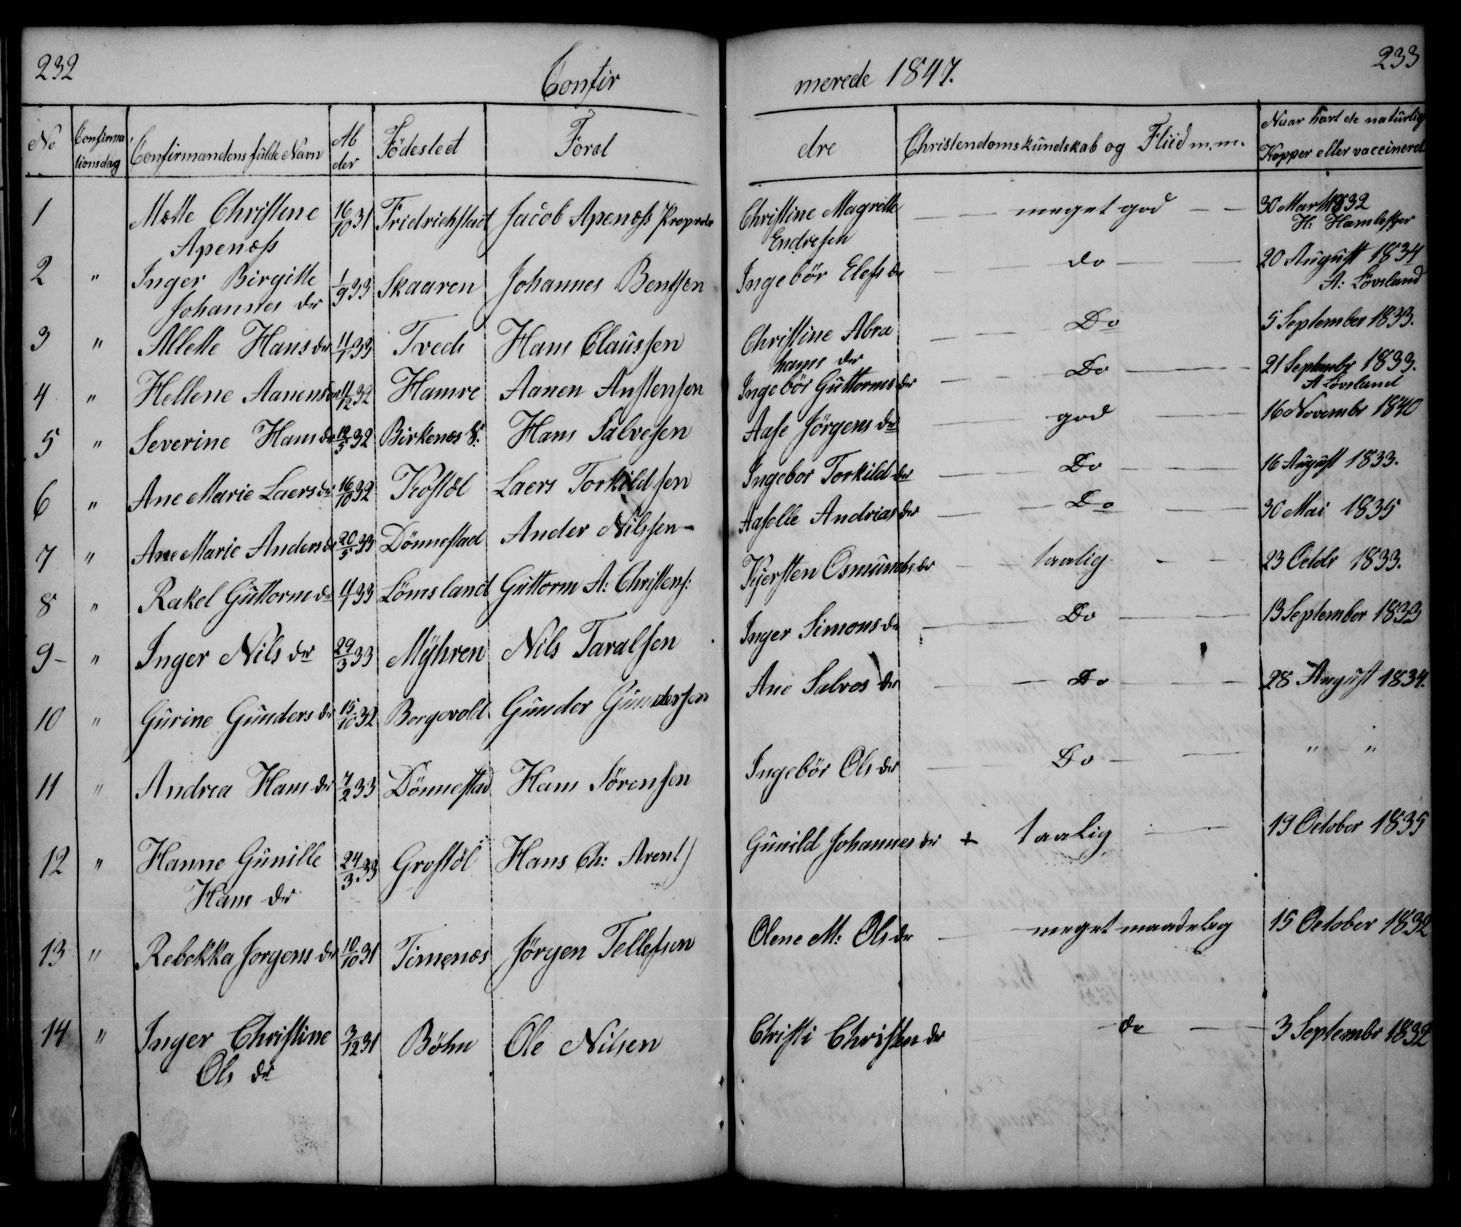 232
233
Confir
merede 1847.
No Confirmationsdag Confirmandens fulde Navn Alder Födested Forældre Christendomskundskab og Fliid m.m. Naar havt de naturlig Kopper eller vaccinered
1 Mette Christene 16/10 31 Fridrichstad Jacob Apenæss Christine Magrette — meget god — 30 Marts 1832
Apenæss Endresen
2 " Inger Birgitte 1/9 33 Skaaren Johannes Bentsen Ingebör Elefs dr — do — 20 August 1834
Johannes dr A: Lövsland
3 " Allette Hans dr 33 Tveds Hans Claussen Christine Abra — Do — 5 September 1833.
hams dr
4 " Hellene Aanens 32 Hamre Aanen Anstensen Ingebör Guttorms dr — Do — 21 Septembr 1833.
A Lövsland
5 " Severine Hans dr 32 Birkenes Hans Salvesen Aase Jörgens dr — god — 16 Novembr 1840
6 " Ane Marie Laers dr 16/10 32 Laers Torkildsen Ingebor Torkilds dr — Do — 16 August 1833.
7 " Ane Marie Anders dr 20/5 33 Dönnestad Ander Nilssen — Aaselle Andrias dr — Do — 30 Mai 1835
8 " Rakel Guttorms dr 33 Lömsland Guttorm A: Christens: Kjersten Osmunds dr — taalig — 23 Octobr 1833.
9 — " Inger Nils dr 29/3 33 Mÿhren Nils Taralsen Inger Simons dr — Do — 13 September 1833
10 " Gurine Gunders dr 15/10 32 Borgevold Gunder Gundersen Ane Salves dr — Do — 28 August 1834.
11 " Andrea Hans dr 7/2 33 Dönnestad Hans Sörensen Ingebör Ols dr — Do — " "
12 " Hanne Gunille 24/3 33 Grostöl Hans Ch: Arent) Gunild Johannes dr + taalig — 19 October 1835
Hans dr
13 " Rebekka Jorgens dr 10/10 31 Timenæs Jörgen Tellefsen Olene M: Ols dr — meget maadeleg 15 October 1832
14 " Inger Christine 3/12 31 Böhn Ole Nilsen Christi Christen dr — do — 3 Septembr 1832
Ols dr